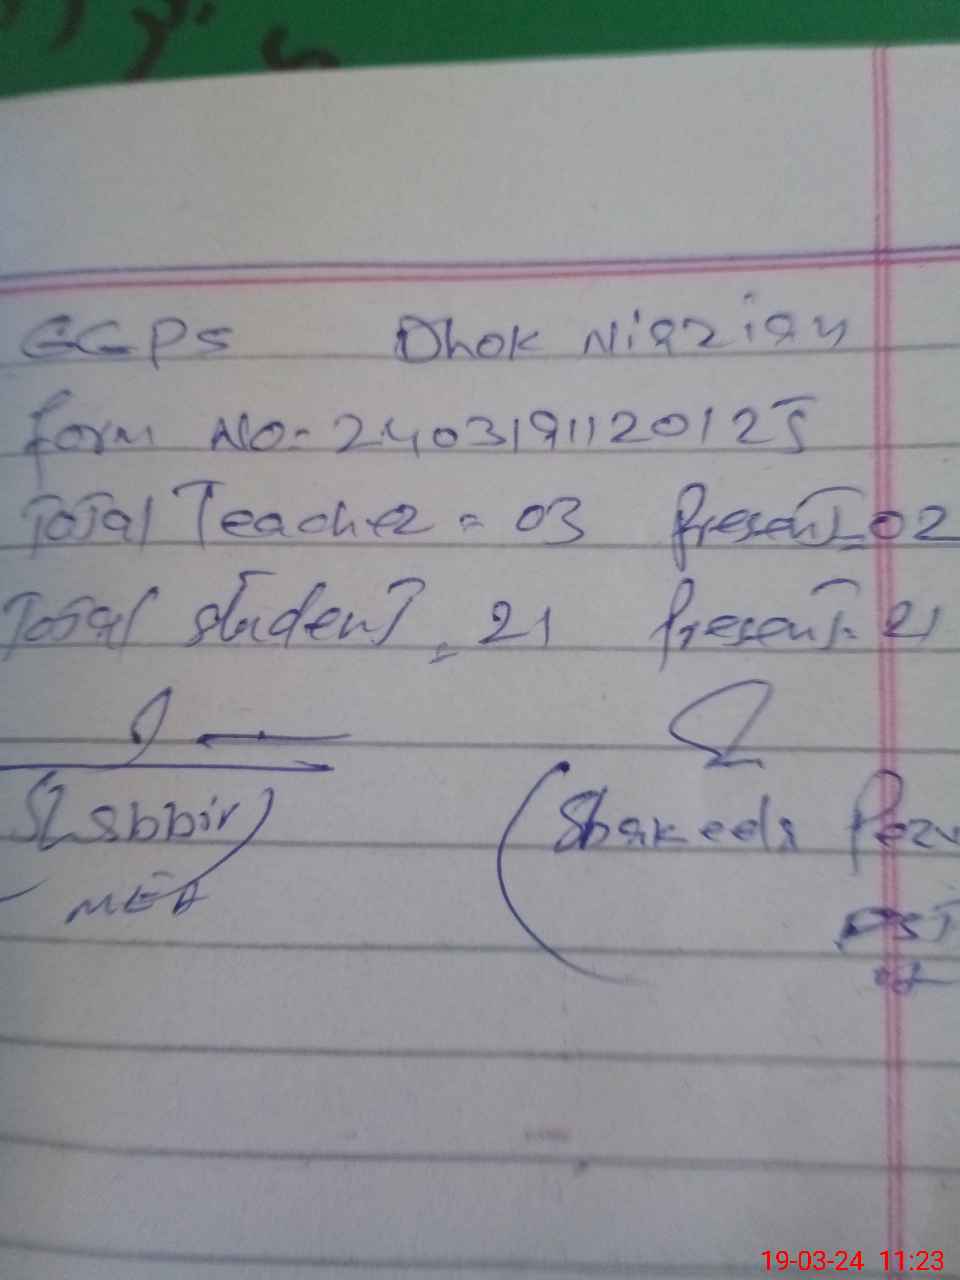 GGPS Dhok Niazian
form No = 2403191120125
Total Teacher = 03 Present = 02
Total student = 21 Present = 21
(Shabbir) (Shakeela
MEA PST
19-03-24 11:23